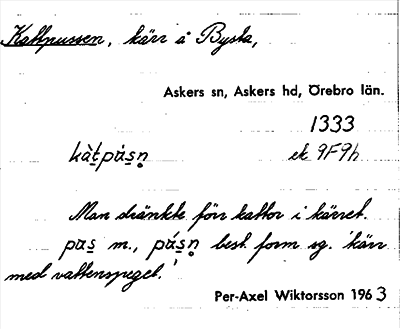 Kattpussen, kärr å Bysta,
Askers sn, Askers hd, Örebro län.
1333
kàt̠pús̠n̥ ek 9F9h
Man dränkte förr kattor i kärret.
pus̠ m., pús̠n̥ best. form sg. 'kärr
med vattenspegel.'
Per-Axel Wiktorsson 1963